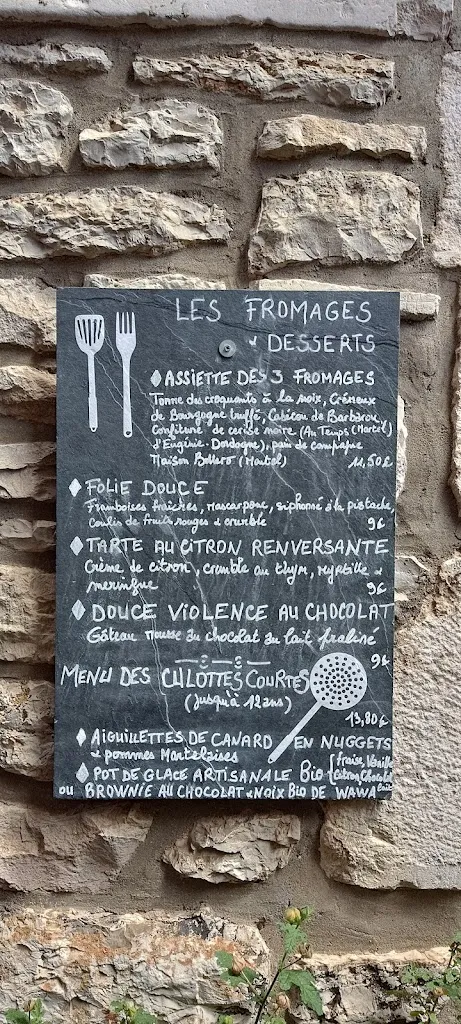 LES FROMAGES
& DESSERTS
ASSIETTE DES 3 FROMAGES
Tomme des croquants à la noix, Crémeux
de Bourgogne truffé, Cabécou de Barbarou,
Confiture de cerise noire (Au Temps (Martel)
d'Eugénie. Dordogne), pain de campagne
Maison Bottero (Martel) 11,50€
FOLIE DOUCE
Framboises fraîches, mascarpone, siphonné à la pistache,
Coulis de fruits rouges & crumble
9€
TARTE AU CITRON RENVERSANTE
Crème de citron, crumble au thym, myrtille &
meringue 9€
DOUCE VIOLENCE AU CHOCOLAT
Gâteau mousse au chocolat au lait praliné
9€
MENU DES CULOTTES COURTES
(jusqu'à 12 ans)
13,80€
AIGUILLETTES DE CANARD EN NUGGETS
& pommes Martelaises
POT DE GLACE ARTISANALE Bio {fraise, Vanille
citron, Chocolat
lait
OU BROWNIE AU CHOCOLAT & NOIX BIO DE WAWA